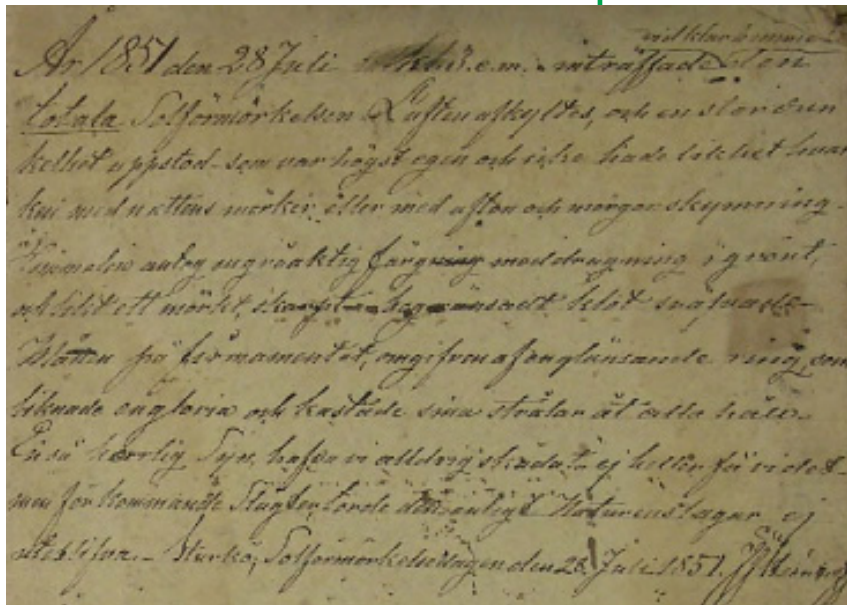 vid klar himmel
År 1851 den 28 Juli kl. 3. e.m. inträffade den
totala Solförmörkelsen. Luften afkyldes, och en stor dun
kelhet uppstod som var högst egen och icke hade likhet hvar
ken med nattens mörker eller med afton och morgon skymning.
Himmelen antog en gråaktig färg med dragning i grönt,
och likt ett mörkt, klot sväfvade
på firmamentet, omgifven af en glänsande ring, som
liknade en gloria och kastade sina strålar åt alla håll.
En så herrlig Syn, hafva vi alldrig skådat ej heller få vi det
men för kommande Slägter torde den enligt Naturens lagar ej
utebliva. Sturkö, Solförmörkelsedagen den 28 Juli 1851.